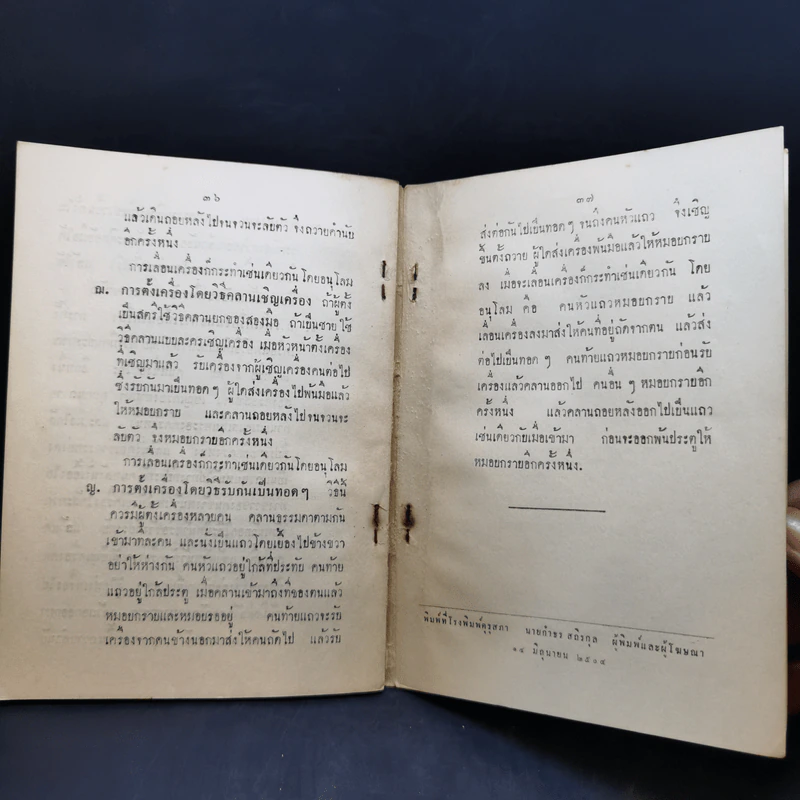 ๓๖
แล้วเดินถอยหลังไปจนจวนจะลับตัว จึงถวายคำนับ
อีกครั้งหนึ่ง
การเลื่อนเครื่องก็กระทำเช่นเดียวกันโดยอนุโลม
ฌ. การตั้งเครื่องโดยวิธีคลานเชิญเครื่อง ถ้าผู้ตั้ง
เป็นสตรีใช้วิธีคลานยกของสองมือ ถ้าเป็นชายใช้
วิธีคลานแบบละครเชิญเครื่อง เมื่อหัวหน้าตั้งเครื่อง
ที่เชิญมาแล้ว รับเครื่องจากผู้เชิญเครื่องคนต่อไป
ซึ่งรับกันมาเป็นทอดๆ ผู้ใดส่งเครื่องไปพ้นมือแล้ว
ให้หมอบกราบ และคลานถอยหลังไปจนจวนจะ
ลับตัว จึงหมอบกราบอีกครั้งหนึ่ง
การเลื่อนเครื่องก็กระทำเช่นเดียวกันโดยอนุโลม
ญ. การตั้งเครื่องโดยวิธีรับกันเป็นทอดๆ วิธีนี้
ควรมีผู้ตั้งเครื่องหลายคน คลานธรรมดาตามกัน
เข้ามาทีละคน และนั่งเป็นแถวโดยเยื้องไปข้างขวา
อย่าให้ห่างกัน คนหัวแถวอยู่ใกล้ที่ประทับ คนท้าย
แถวอยู่ใกล้ประตู เมื่อคลานเข้ามาถึงที่ของตนแล้ว
หมอบกราบและหมอบรออยู่ คนท้ายแถวจะรับ
เครื่องจากคนข้างนอกมาส่งให้คนถัดไป แล้วรับ
๓๗
ส่งต่อกันไปเป็นทอดๆ จนถึงคนหัวแถว จึงเชิญ
ขึ้นตั้งถวาย ผู้ใดส่งเครื่องพ้นมือแล้วให้หมอบกราบ
ลง เมื่อจะเลื่อนเครื่องก็กระทำเช่นเดียวกัน โดย
อนุโลม คือ คนหัวแถวหมอบกราบ แล้ว
เลื่อนเครื่องลงมาส่งให้คนที่อยู่ถัดจากตน แล้วส่ง
ต่อไปเป็นทอดๆ คนท้ายแถวหมอบกราบก่อนรับ
เครื่องแล้วคลานออกไป คนอื่นๆ หมอบกราบอีก
ครั้งหนึ่ง แล้วคลานถอยหลังออกไปเป็นแถว
เช่นเดียวกับเมื่อเข้ามา ก่อนจะออกพ้นประตูให้
หมอบกราบอีกครั้งหนึ่ง.
พิมพ์ที่โรงพิมพ์คุรุสภา นายกำธร สถิรกุล ผู้พิมพ์และผู้โฆษณา
๑๔ มิถุนายน ๒๕๑๔